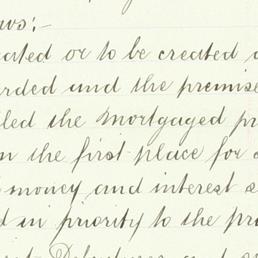 ows:-
eated or to be created a
arded and the premise
lled the mortgaged pr
n the first place for
money and interest s
d in priority to the pr
Debentures and